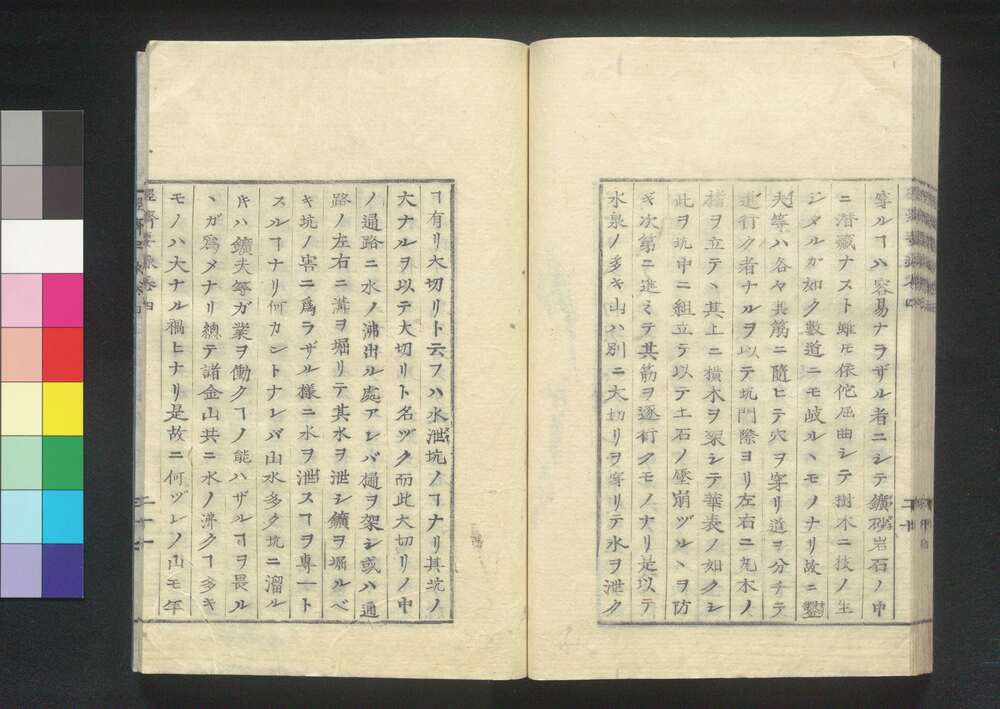 穿ルヿハ容易ナラザル者ニシテ鑛砂岩石ノ中
ニ潜藏ナスト雖𪜈依佗屈曲シテ樹木ニ技ノ生
ジタルガ如ク數道ニモ岐ルヽモノナリ故ニ鑿
夫等ハ各々其筋ニ隨ヒテ穴ヲ穿リ道ヲ分チテ
進行ク者ナルヲ以テ坑門際ヨリ左右ニ丸木ノ
柱ヲ立テヽ其上ニ横木ヲ架シテ華表ノ如クシ
此ヲ坑中ニ組立テ以テ土石ノ壓崩ヅルヽヲ防
ギ次第ニ進ミテ其筋ヲ逐行クモノナリ是以テ
水泉ノ多キ山ハ別ニ大切リヲ穿リテ水ヲ泄ク
ヿ有リ大切リト云フハ水泄坑ノヿナリ其坑ノ
大ナルヲ以テ大切リト名ヅク而此大切リノ中
ノ通路ニ水ノ沸出ル處アレバ樋ヲ架シ或ハ通
路ノ左右ニ溝ヲ堀リテ其水ヲ泄シ鑛ヲ堀ルベ
キ坑ノ害ニ爲ラザル樣ニ水ヲ泄スヿヲ專一ト
スルヿナリ何カントナレバ山水多ク坑ニ溜ル
𪜈ハ鑛夫等ガ業ヲ働クヿノ能ハザルヿヲ畏ル
ヽガ爲メナリ總テ諸金山共ニ水ノ沸クヿ多キ
モノハ大ナル禍ヒナリ是故ニ何ヅレノ山モ年